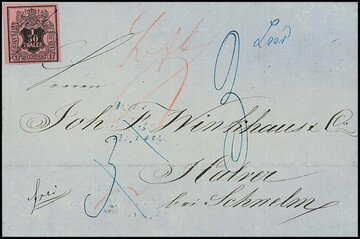 1
30
THALER
Leer
3
Herrn
Joh. F. Winkhaus & Co
Halver
bei Schwelm
frei
3